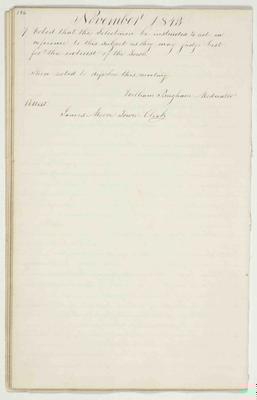 November 1843
Voted that the Selectmen be instructed to act in
reference to this subject as they may judge best
for the interest of the Town.
then voted to dissolve this meeting
William Bingham Moderator
Attest
James Town Clerk